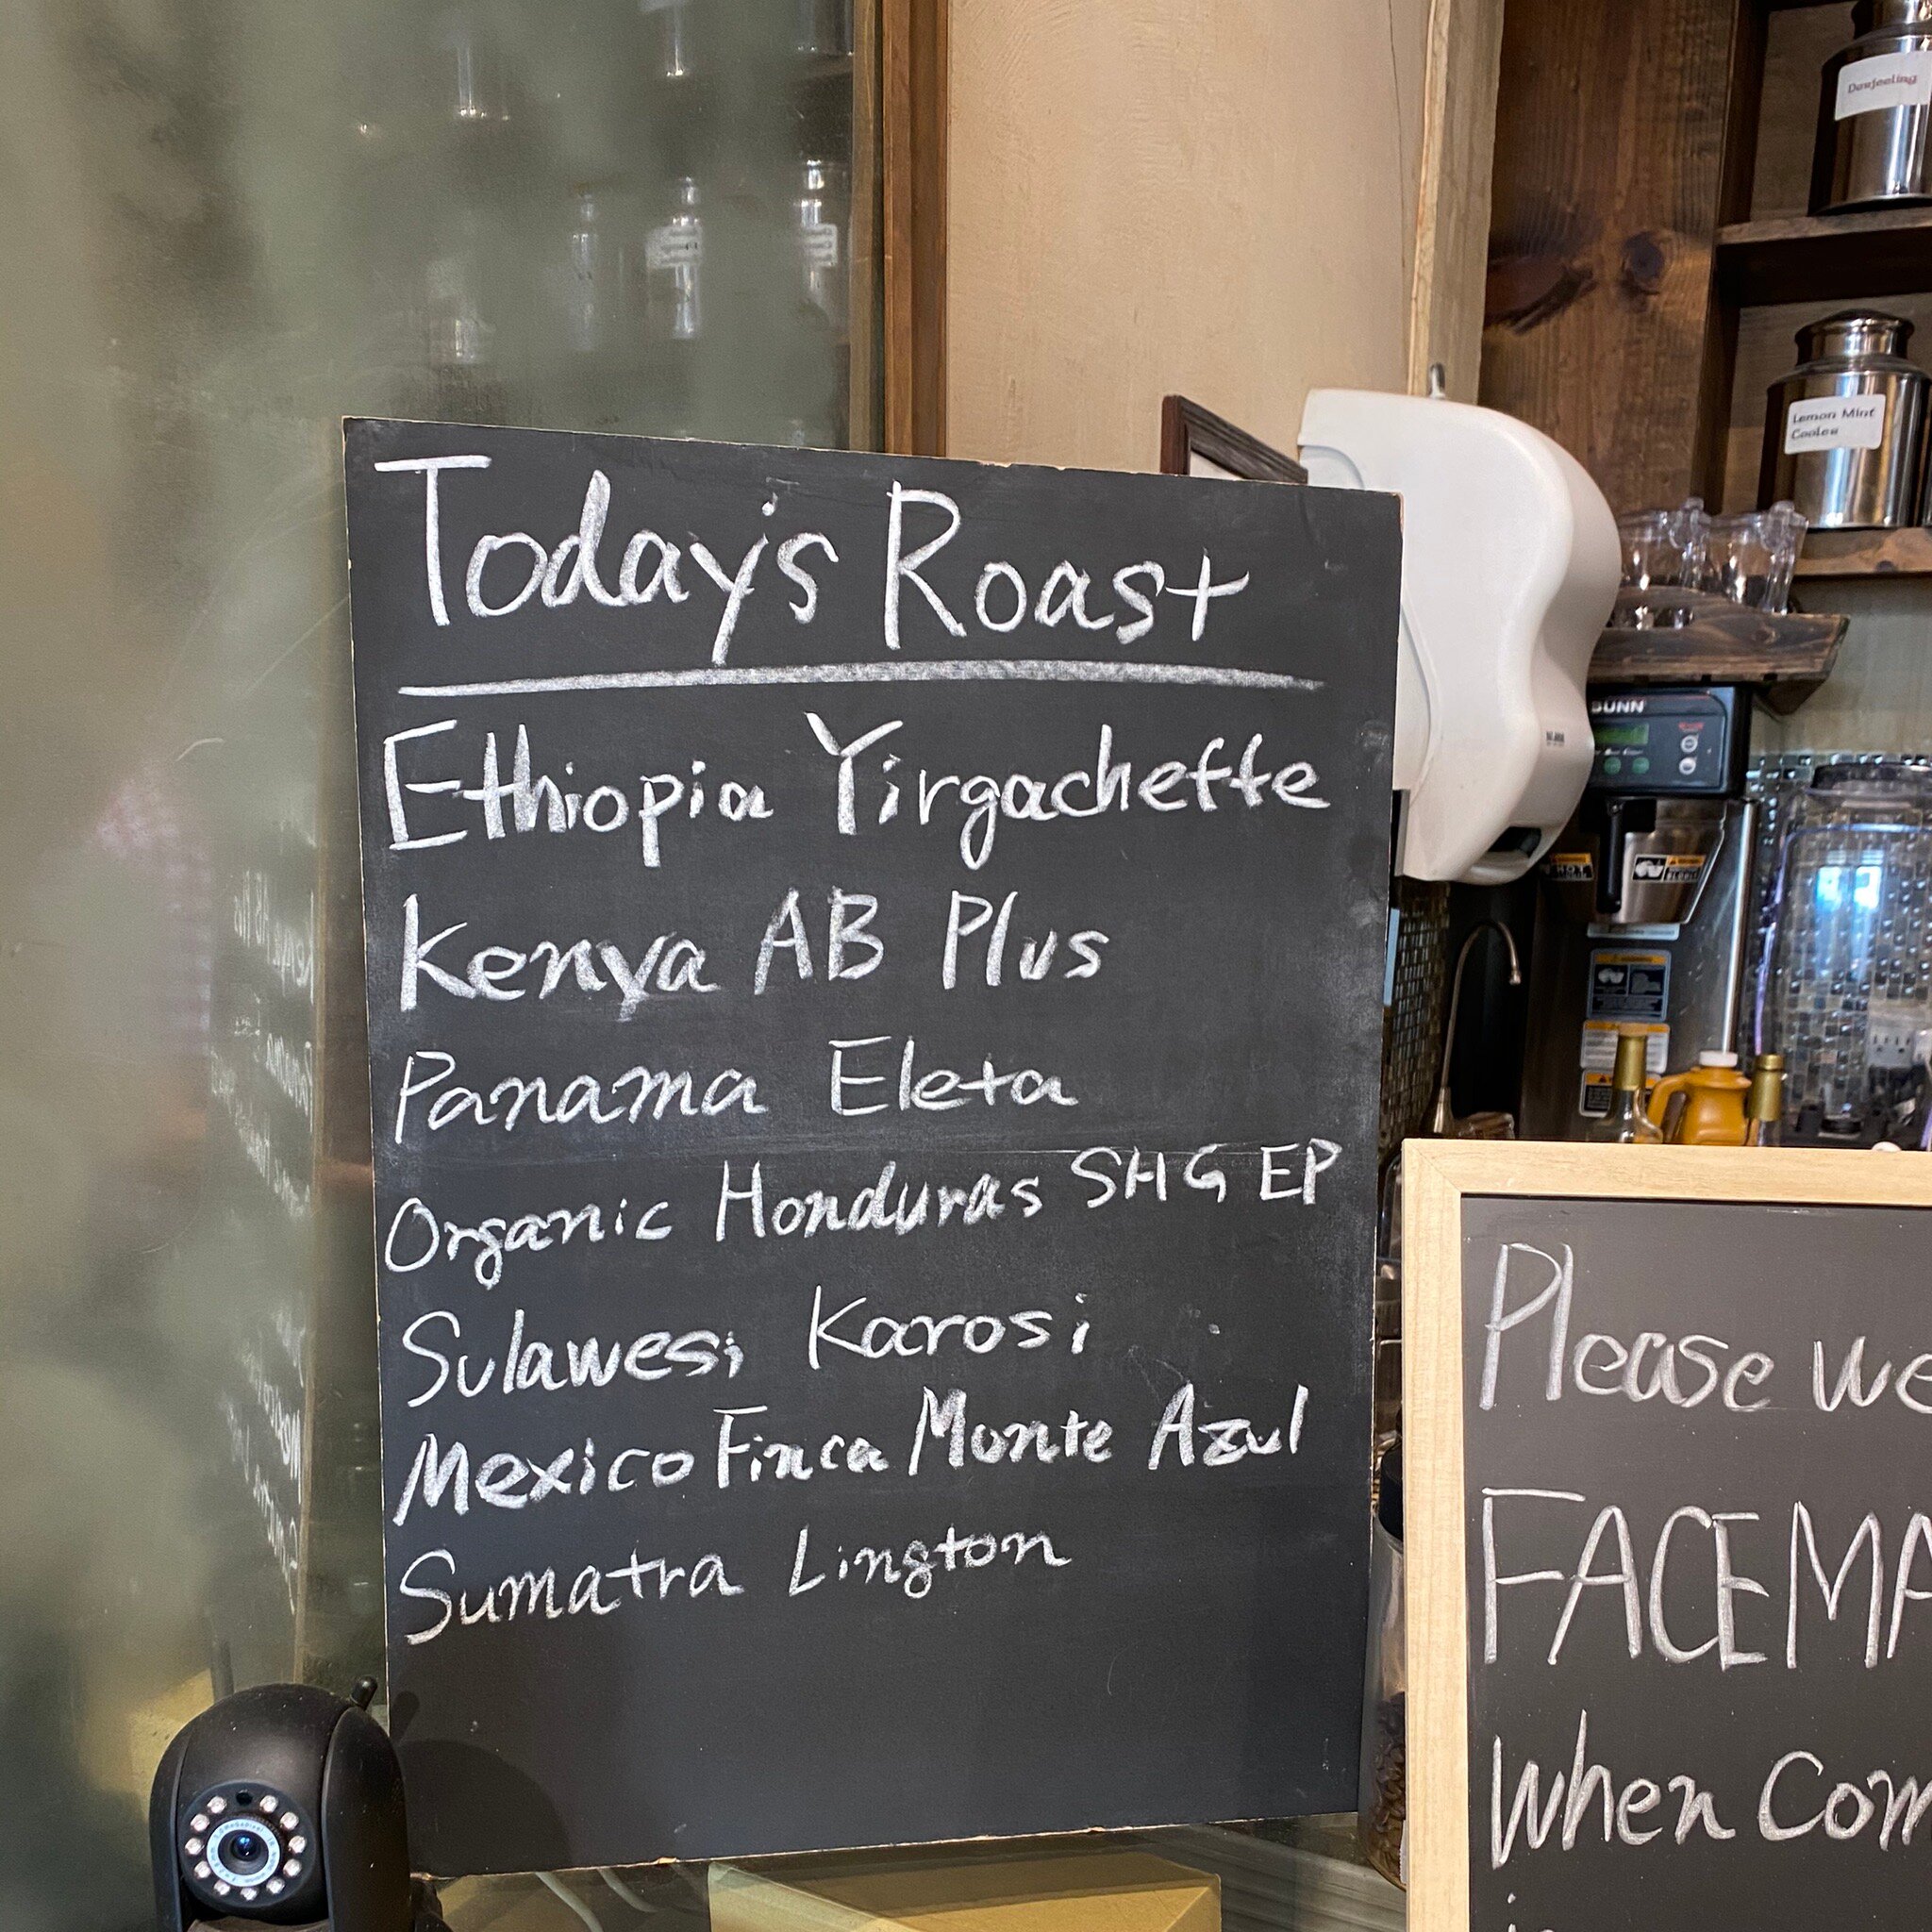 Today's Roast
Ethiopia Yirgacheffe
Kenya AB Plus
Panama Eleta
Organic Honduras SHG EP
Sulawesi Karosi
Mexico Finca Monte Azul
Sumatra Lington
Please we
FACEMA
when com
Lemon Mint
Cooles
BUNN